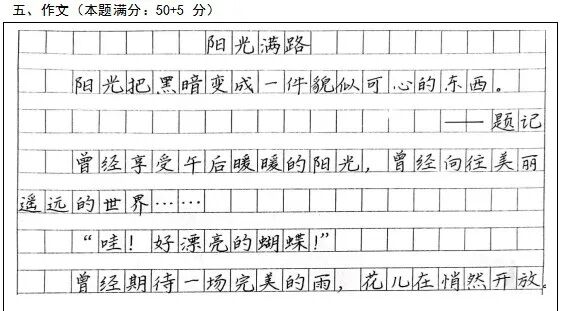 五、作文（本题满分：50+5 分）
阳光满路
阳光把黑暗变成一件貌似可心的东西。
——题记
曾经享受午后暖暖的阳光，曾经向往美丽
遥远的世界……
“哇！好漂亮的蝴蝶！”
曾经期待一场完美的雨，花儿在悄然开放。